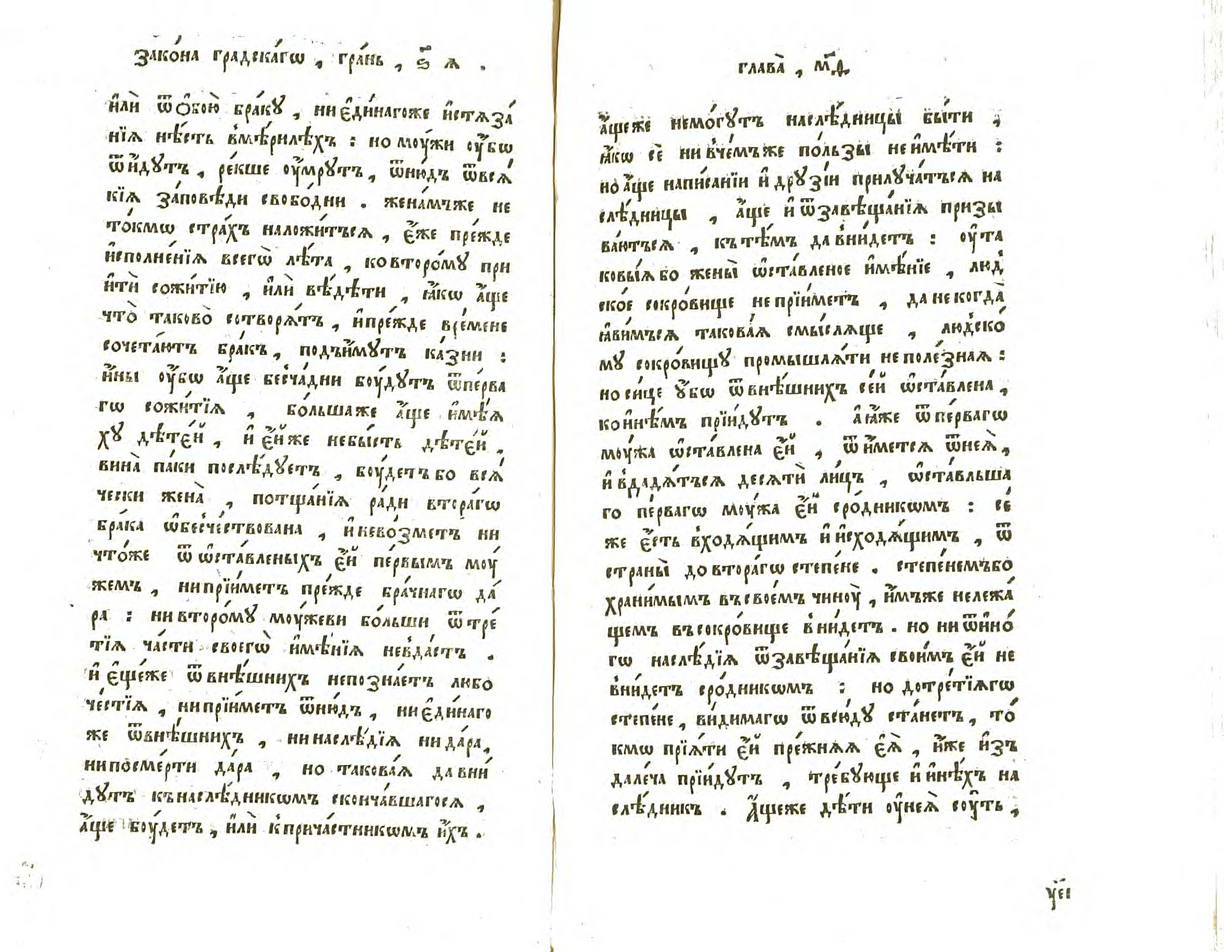 Зако́на гра́дскагѡ , гра́нь , ѕ҃ ѧ .
и҆лѝ ѿ ѻ҆бою̀ бра́кꙋ , ни є҆ди́нагоже и҆стѧза́
нїѧ нѣ́сть вмѣри́лѣхъ : но моу́жи оу҆́бѡ
ѿи́дꙋтъ , ре́кше оу҆́мрꙋтъ , ѿню́дъ ѿ всѧ́
кїѧ за́повѣди свобо́дни . жена́мъже не
то́кмѡ стра́хъ наложи́тьсѧ , є҆́же пре́жде
и҆сполне́нїѧ всегѡ̀ лѣ́та , ко второ́мꙋ при
и҆тѝ сожи́тїю , и҆лѝ вѣ́дѣти , ꙗ҆́кѡ а҆́ще
что̀ таково̀ сотворѧ́тъ , и҆ пре́жде вре́мене
сочета́ютъ бра́къ , подъи́мꙋтъ ка́зни :
и҆́ны оу҆́бѡ а҆́ще бесча́дни боу́дꙋтъ ѿ пе́рва
гѡ сожи́тїѧ , бо́льшаже а҆́ще и҆мѣ́ѧ
хꙋ дѣте́й , и҆ є҆́йже небы́сть дѣте́й ,
вина̀ па́ки послѣ́дꙋетъ , боу́детъ бо всѧ́
чески жена̀ , потща́нїѧ ра́ди втора́гѡ
бра́ка ѡ҆бесче́ствована , и҆ нево́зметъ ни
что́же ѿ ѡ҆ста́вленыхъ є҆́й пе́рвымъ моу́
жемъ , ни прїи́метъ пре́жде бра́чнагѡ да́
ра : ни второ́мꙋ моу́жеви бо́льши ѿ тре́
тїѧ ча́сти своегѡ̀ и҆мѣ́нїѧ невда́стъ .
и҆ є҆ще́же ѿ внѣ́шнихъ непозна́етъ любо
че́стїѧ , ни прїи́метъ ѿню́дъ , ни є҆ди́наго
же ѿ внѣ́шнихъ , ни наслѣ́дїѧ ни да́ра ,
ни посме́рти да́ра , но такова́ѧ да вни́
дꙋтъ къ наслѣ́дникѡмъ сконча́вшагосѧ ,
а҆́ще боу́детъ , и҆лѝ к прича́стникѡмъ и҆́хъ .
глава̀ , м҃д
а҆́щеже немо́гꙋтъ наслѣ́дницы бы́ти ,
ꙗ҆́кѡ се́ ни вче́мъже по́льзы неимѣ́ти :
но а҆́ще написанїи и҆ дрꙋзїи прилꙋча́тъсѧ на
слѣ́дницы , а҆́ще и҆ ѿ завѣща́нїѧ призы
ва́ютьсѧ , къ тѣ́мъ да вни́детъ : оу҆ та
ковы́ѧ бо жены̀ ѡ҆ста́вленое и҆мѣ́нїе , люд̾
ско́е сокро́вище не прїи́метъ , да не когда̀
ꙗ҆ви́мъсѧ такова́ѧ смы́слѧще , лю́дско́
мꙋ сокро́вищꙋ промышлѧ́ти неполе́знаѧ :
но си́це ᲂу҆́бѡ ѿ внѣ́шнихъ се́й ѡ҆ста́влена ,
ко и҆нѣ́мъ прїи́дꙋтъ . а҆ ꙗ҆́же ѿ пе́рвагѡ
моу́жа ѡ҆ста́влена є҆́й , ѿи́метсѧ ѿ неѧ̀ ,
и҆ вдадѧ́тъсѧ десѧтѝ ли́цъ , ѡ҆ста́вльша
го пе́рвагѡ моу́жа є҆́й сро́дникѡмъ : се́
же є҆́сть входѧ́щимъ и҆ и҆сходѧ́щимъ , ѿ
страны̀ до втора́гѡ степе́не . степе́немъбо
храни́мымъ въ свое́мъ чиноу̀ , и҆́мъже нележа́
щемъ въ сокро́вище вни́детъ . но ни ѿ и҆но́
гѡ наслѣ́дїѧ ѿ завѣща́нїѧ свои́мъ є҆́й не
вни́детъ сро́дникѡмъ : но до тре́тїѧгѡ
степе́не , ви́димагѡ ѿвсю́дꙋ ста́нетъ , то́
кмѡ прїѧ́ти є҆́й пре́жнѧѧ є҆ѧ̀ , и҆́же и҆з̾
дале́ча прїи́дꙋтъ , тре́бꙋюще и҆ и҆нѣ́хъ на
слѣ́дникъ . А҆́щеже дѣ́ти оу҆ неѧ̀ соу́ть ,
у҃еі